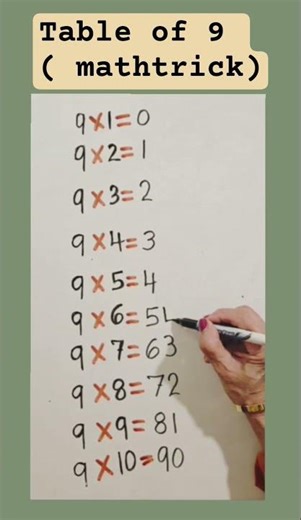 Table of 9
( mathtrick)
9×1=0
9×2=1
9×3=2
9×4=3
9×5=4
9×6=54
9×7=63
9×8=72
9×9=81
9×10=90